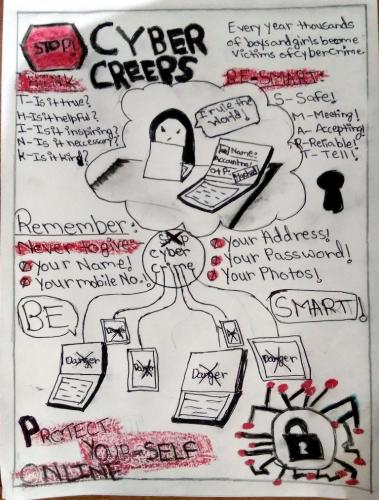 STOP!
CYBER
CREEPS
Every year thousands
of boys and girls become
Victims of Cyber Crime.
THINK
T-Is it true?
H-Is it helpful?
I-Is it inspiring?
N-Is it neccessary?
K-Is it kind?
BE-SMART
S-Safe!
M-Meeting!
A-Accepting!
R-Reliable!
T-Tell!
I rule the
World!
Name:
Account no:
OTP:
Hacked
Remember:
Never to give:
Your Name!
Your mobile No.!
Stop
Cyber
Crime
Your Address!
Your Password!
Your Photos!
BE
SMART!
Danger
Danger
Danger
Danger
PROTECT
YOUR-SELF
ONLINE